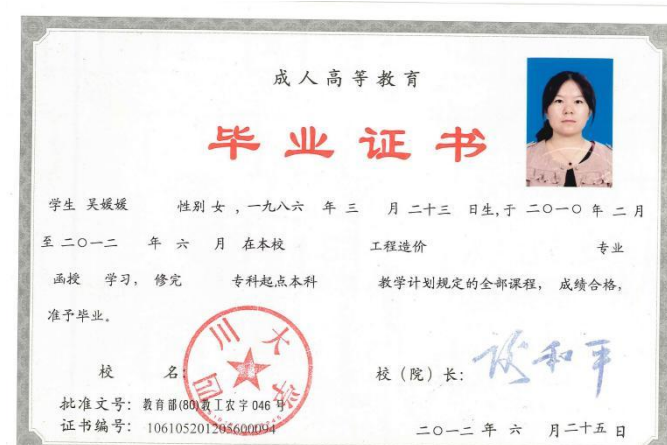 成人高等教育
毕业证书
学生 吴媛媛 性别 女 ，一九八六 年 三 月 二十三 日生,于 二〇一〇 年 二月
至 二〇一二 年 六 月 在本校 工程造价 专业
函授 学习， 修完 专科起点本科 教学计划规定的全部课程， 成绩合格，
准予毕业。
四川大学
校 名： 校（院）长： 谢和平
批准文号： 教育部(80)教工农字 046 号
证书编号： 106105201205600094 二〇一二 年 六 月二十五 日